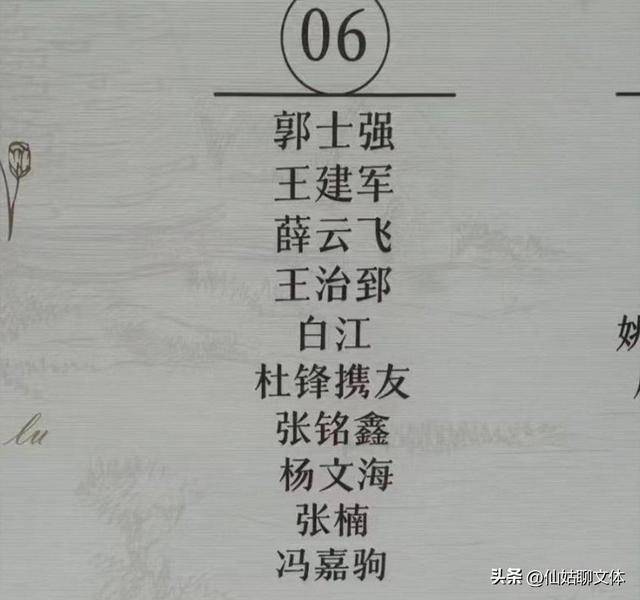 06
郭士强
王建军
薛云飞
王治郅
白江
杜锋携友
张铭鑫
杨文海
张楠
冯嘉驹
姚
lu
头条 @仙姑聊文体